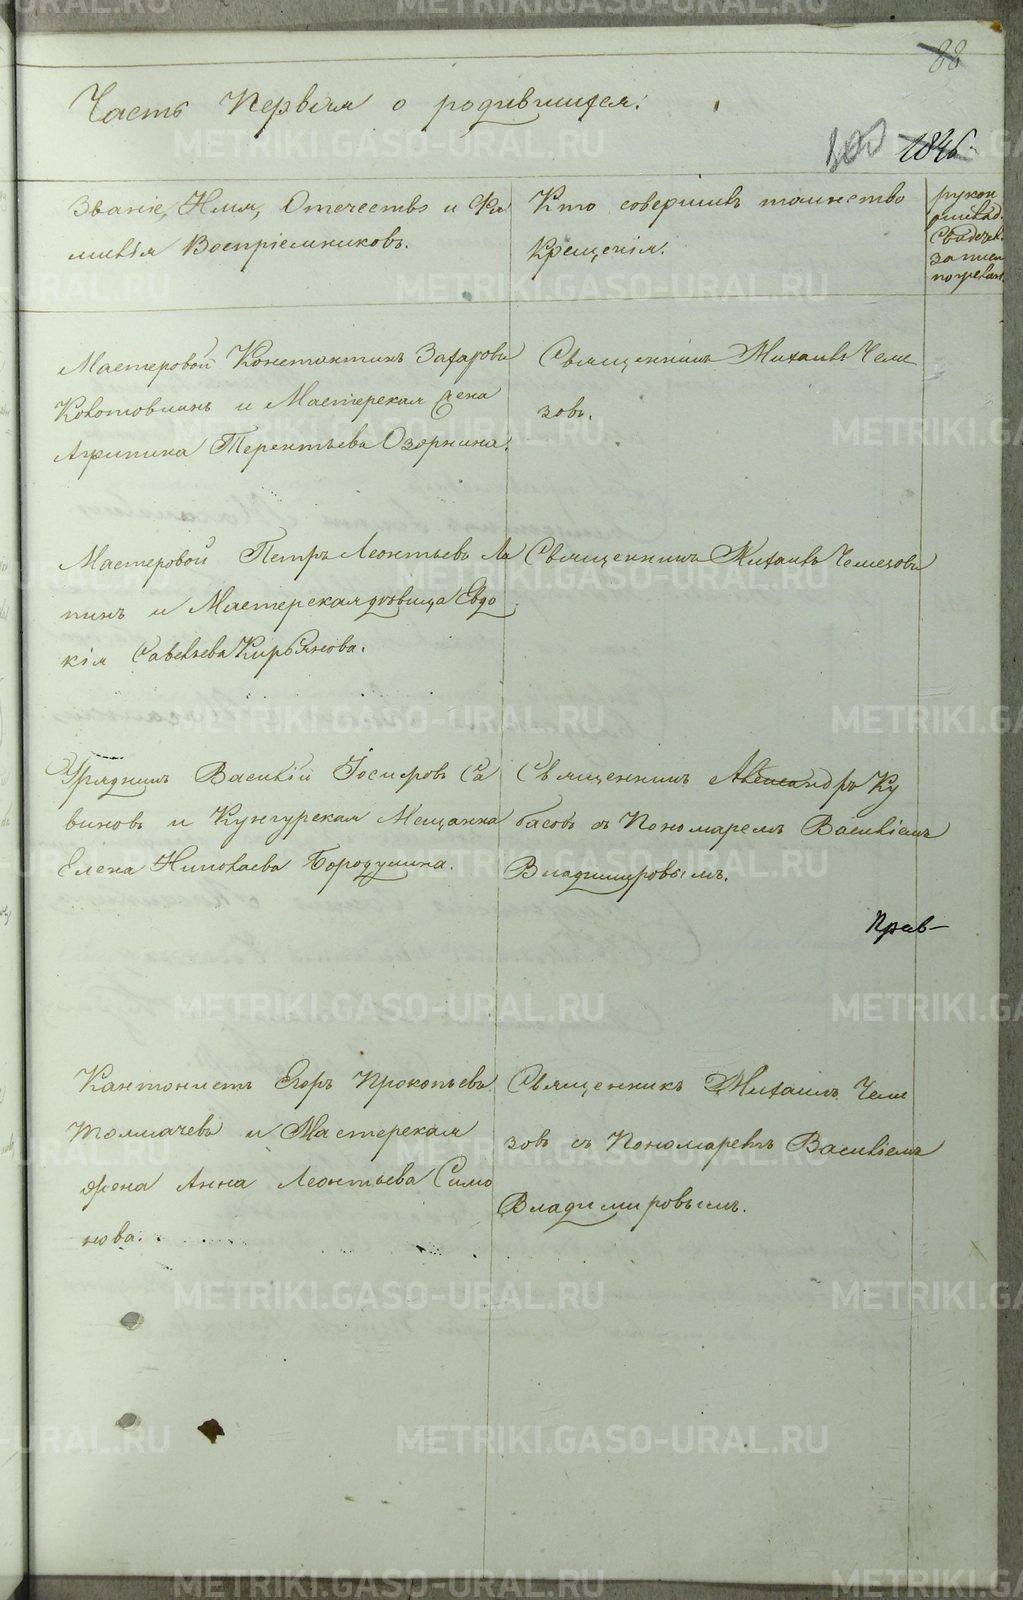 88
Часть Первая о родившихся.
1846
Званіе, Имя, Отечество и Фа
милія Воспріемниковъ.
Кто совершилъ таинство
Крещенія.
рукоп
свидѣт.
записи
по желан.
Мастеровой Константинъ Захаровъ
Колотовкинъ и Мастерская жена
Агрипина Терентьева Озорнина.
Священникъ Михаилъ Чеме
зовъ.
Мастеровой Петръ Леонтьевъ Ла
пинъ и Мастерская дѣвица Евдо
кія Савельева Кирьянова.
Священникъ Михаилъ Чемезовъ
Урядникъ Василій Іосифовъ Са
виновъ и Кунгурская Мещанка
Елена Николаева Бородулина.
Священникъ Александръ Ку
басовъ съ Пономаремъ Василіемъ
Владимировымъ.
Прав-
Кантонистъ Егоръ Прокопьевъ
Толмачевъ и Мастерская
жена Анна Леонтьева Симо
нова.
Священникъ Михаилъ Чеме
зовъ съ Пономаремъ Василіемъ
Владимировымъ.
METRIKI.GASO-URAL.RU